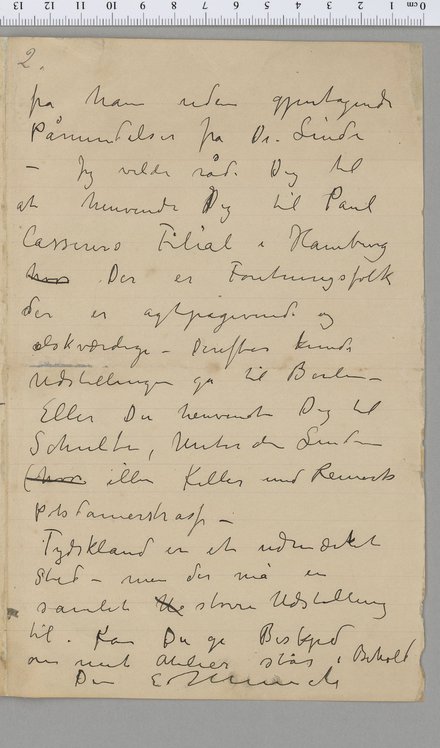 2.
fra ham uden gjentagende
Påmindelser fra Dr. Linde
– Jeg vilde råde Dig til
at henvende Dig til Paul
Cassirers Filial i Hamburg
hvor Der er Forretningsfolk
der er agtpågivende og
elskværdige – Derefter kunde
Udstillingen gå til Berlin –
Eller Du henvendte Dig til
Schulte, Unter den Linden
(hvor eller Keller und Reiner
Potsdamerstrasse –
Tydskland er et udmærket
Sted – men der må en
samlet større Udstilling
til. Kan Du gi Besked
om mit atelier står i Behold
Din E Munch